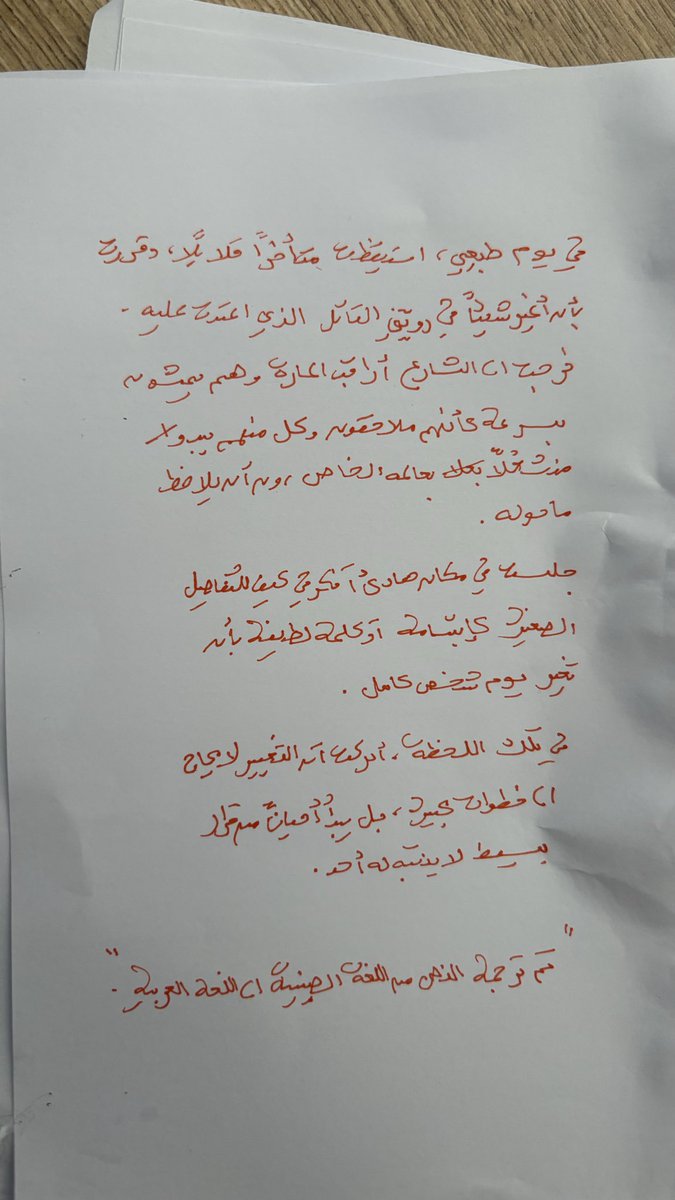 في يوم طبيعي، استيقظت متأخراً قلايلًا، وقررت
بأن أغير شيئاً في روتيني القاتل الذي اعتدت عليه.
خرجت الى الشارع أراقب المارة وهم يمشون
بسرعة كأنهم ملاحقون وكل منهم يبدو
منشغلاً بعالمه الخاص، دون أن يلاحظ
ما حوله.
جلست في مكان هادئ أفكر في كيف للتفاصيل
الصغيرة كإبتسامة أو كلمة لطيفة بأن
تغير يوم شخص كامل.
في تلك اللحظة، أدركت أن التغيير لا يحتاج
الى خطوات كبيرة، بل يبدأ أحياناً من قرار
بسيط لا ينتبه له أحد.
"تم ترجمة النص من اللغة الصينية الى اللغة العربية".